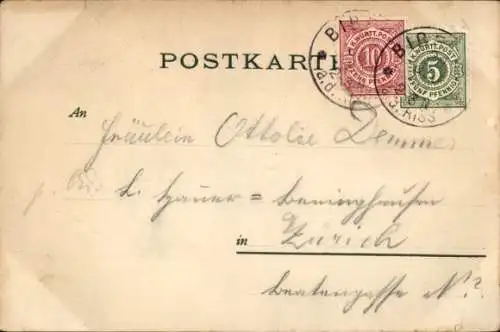 POSTKARTE
K. WÜRTT. POST
10
ZEHN PFENNIG
K. WÜRTT. POST
5
FÜNF PFENNIG
BIB
a.d.
BIB
RISS
An
Fräulein Ottolie Demmer
p. Adr. L. Hauer = Beninghausen
in Zürich
Beatengasse N.